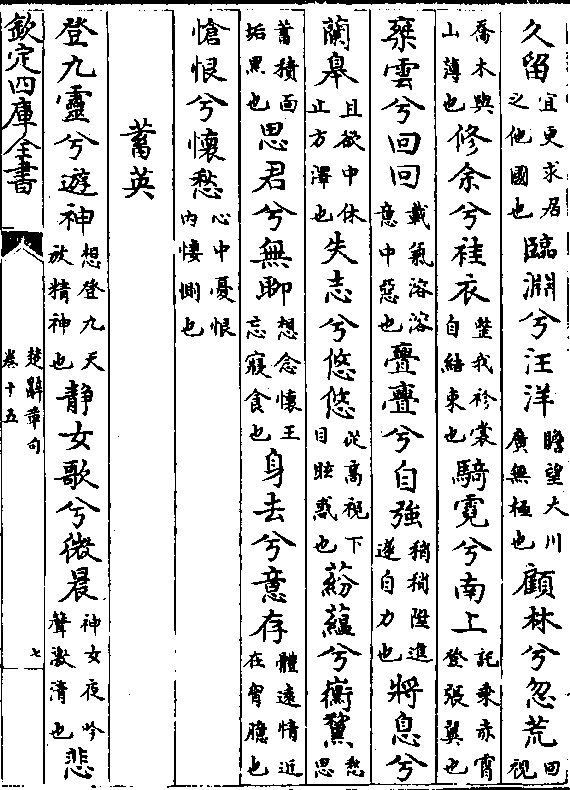 久留宜更求居之他國也臨淵兮汪洋瞻望大川廣無極也顧林兮忽荒回視
喬木與山薄也修余兮袿衣整我衿裳自結束也騎霓兮南上託乘赤霄登張翼也
椉雲兮回回載氣溶溶意中惡也亹亹兮自強稍稍陞進遂自力也將息兮
蘭臯且欲中休止方澤也失志兮悠悠從高視下目眩惑也蒶蘊兮黴黧愁思
蓄積面垢黒也思君兮無聊想念懷王忘寢食也身去兮意存體遠情近在胷臆也
愴恨兮懷愁心中憂恨内悽惻也
蓄英
登九靈兮遊神想登九天放精神也靜女歌兮微晨神女夜吟聲激清也悲
欽定四庫全書
楚辭章句
卷十五
七